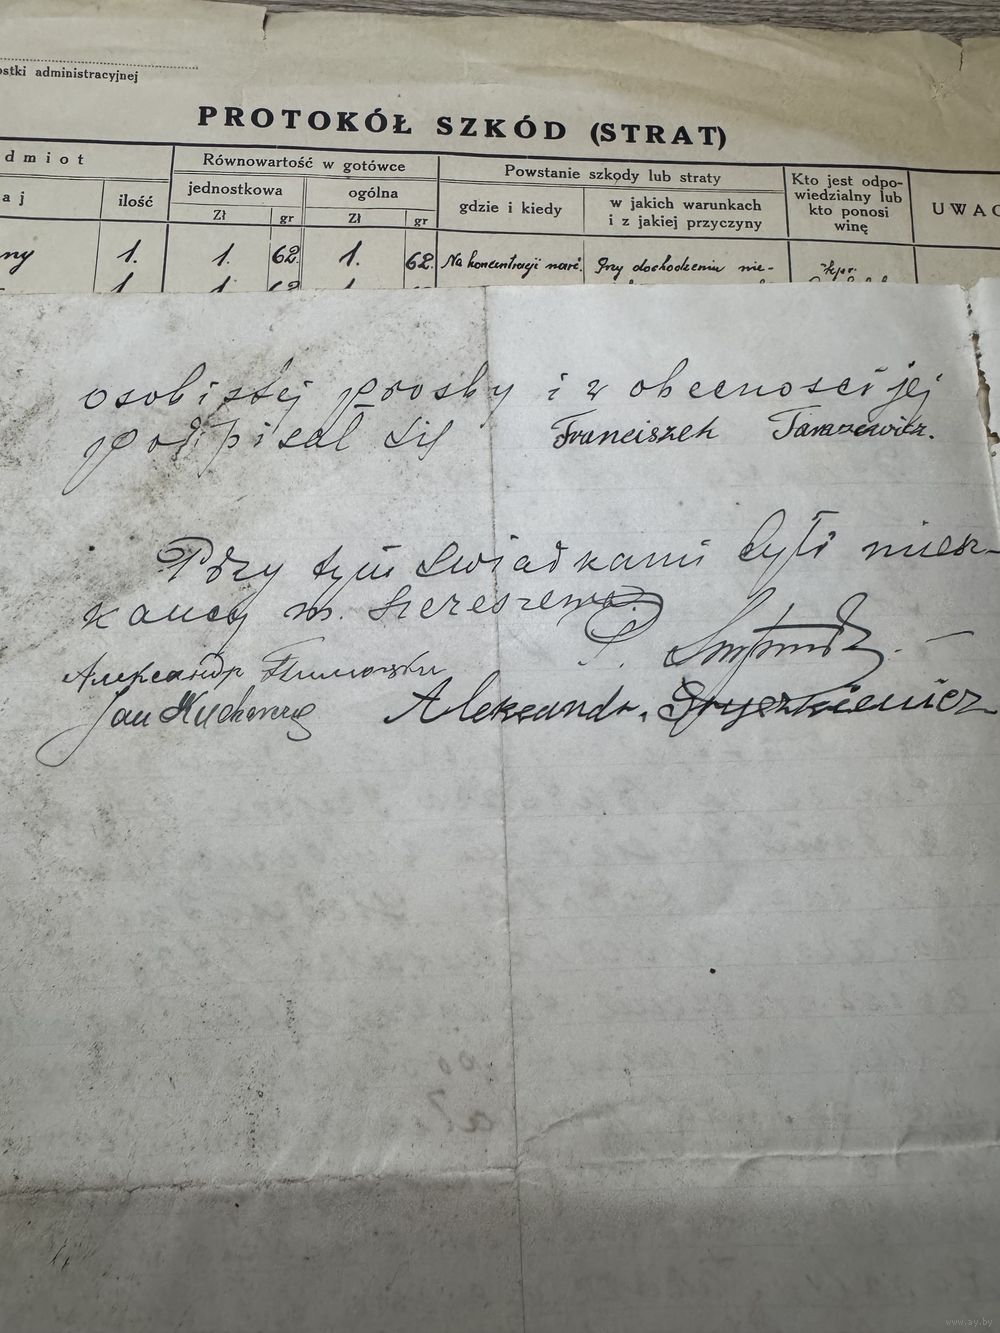 ostki administracyjnej
PROTOKÓŁ SZKÓD (STRAT)
dmiot
Równowartość w gotówce
Powstanie szkody lub straty
Kto jest odpo-
wiedzialny lub
kto ponosi
winę
UWAG
aj
ilość
jednostkowa
ogólna
gdzie i kiedy
w jakich warunkach
i z jakiej przyczyny
Zł
gr
Zł
gr
ny
1.
1.
62.
1.
62.
Na koncentracji narc.
Przy dochodzeniu nie-
kpr.
1
1
62
osobistej prosby i w obecnosci jej
podpisał się Franciszek Tarasewicz.
Przy tym swiadkami byli miesz-
kancy m. Szereszewa.
Александр
Jan Kucharczyk
Aleksandr. Gryszkiewicz
www.ay.by